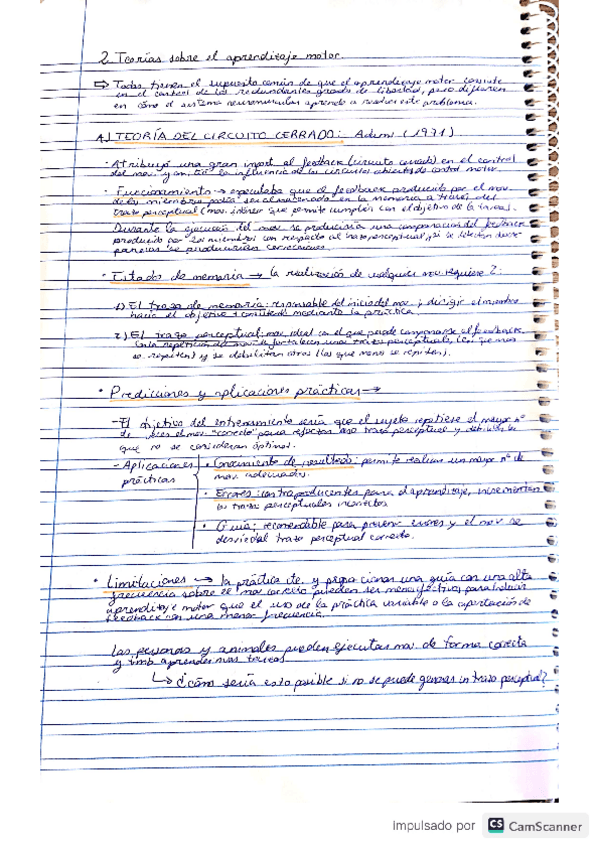 2. Teorías sobre el aprendizaje motor.
⇨ Todas tienen el supuesto común de que el aprendizaje motor consiste
en el control de las redundantes grados de libertad, pero difieren
en cómo el sistema neuromuscular aprende a resolver este problema.
A) TEORÍA DEL CIRCUITO CERRADO: Adams (1971)
· Atribuyó una gran import. al feedback (circuito cerrado) en el control
del mov. y la influencia de los circuitos abiertos de control motor.
· Funcionamiento → especulaba que el feedback producido por el mov.
de los miembros podía ser almacenado en la memoria a través del
trazo perceptual (mov. interior que permite cumplir con el objetivo de la tarea).
Durante la ejecución del mov. se produciría una comparación del feedback
producido por los miembros con respecto al trazo perceptual, si se
se producirían correcciones.
· Estados de memoria → la realización de cualquier mov. requiere 2:
1) El trazo de memoria: responsable del inicio del mov., dirigir el miembro
hacia el objetivo mediante la práctica.
2) El trazo perceptual: mov. ideal con el que puede compararse el feedback.
Con la repetición del mov. se fortalecen unos trazos perceptuales (los que más
se repiten) y se debilitan otros (los que menos se repiten).
· Predicciones y aplicaciones prácticas →
- El objetivo del entrenamiento sería que el sujeto repitiese el mayor nº
de veces el mov. "correcto" para reforzar ese trazo perceptual y debilitar los
que no se consideran óptimos.
- Aplicaciones prácticas
· Conocimiento de resultados: permite realizar un mayor nº de
mov. adecuados.
· Errores: contraproducentes para el aprendizaje, incrementan
los trazos perceptuales incorrectos.
· Guía: recomendable para prevenir errores y el mov. se
desvíe del trazo perceptual correcto.
· Limitaciones → la práctica cte. y proporcionar una guía con una alta
frecuencia sobre el mov. correcto pueden ser menos efectivos para inducir
aprendizaje motor que el uso de la práctica variable o la aportación de
feedback con una menor frecuencia.
Las personas y animales pueden ejecutar mov. de forma correcta
y tmb aprender mas tareas.
↳ ¿cómo sería esto posible si no se puede generar un trazo perceptual?
Impulsado por CS CamScanner